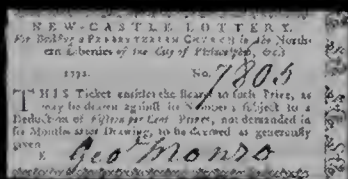 NEW-CASTLE LOTTERY,
For Building a PRESBYTERIAN CHURCH in the North-
ern Liberties of the City of Philadelphia, &c.
1772. No. 7805
THIS Ticket entitles the Bearer to such Prize, as
may be drawn against its Number; subject to a
Deduction of Fifteen per Cent. Prizes, not demanded in
Six Months after Drawing, to be deemed as generously
given
E Geo. Monro